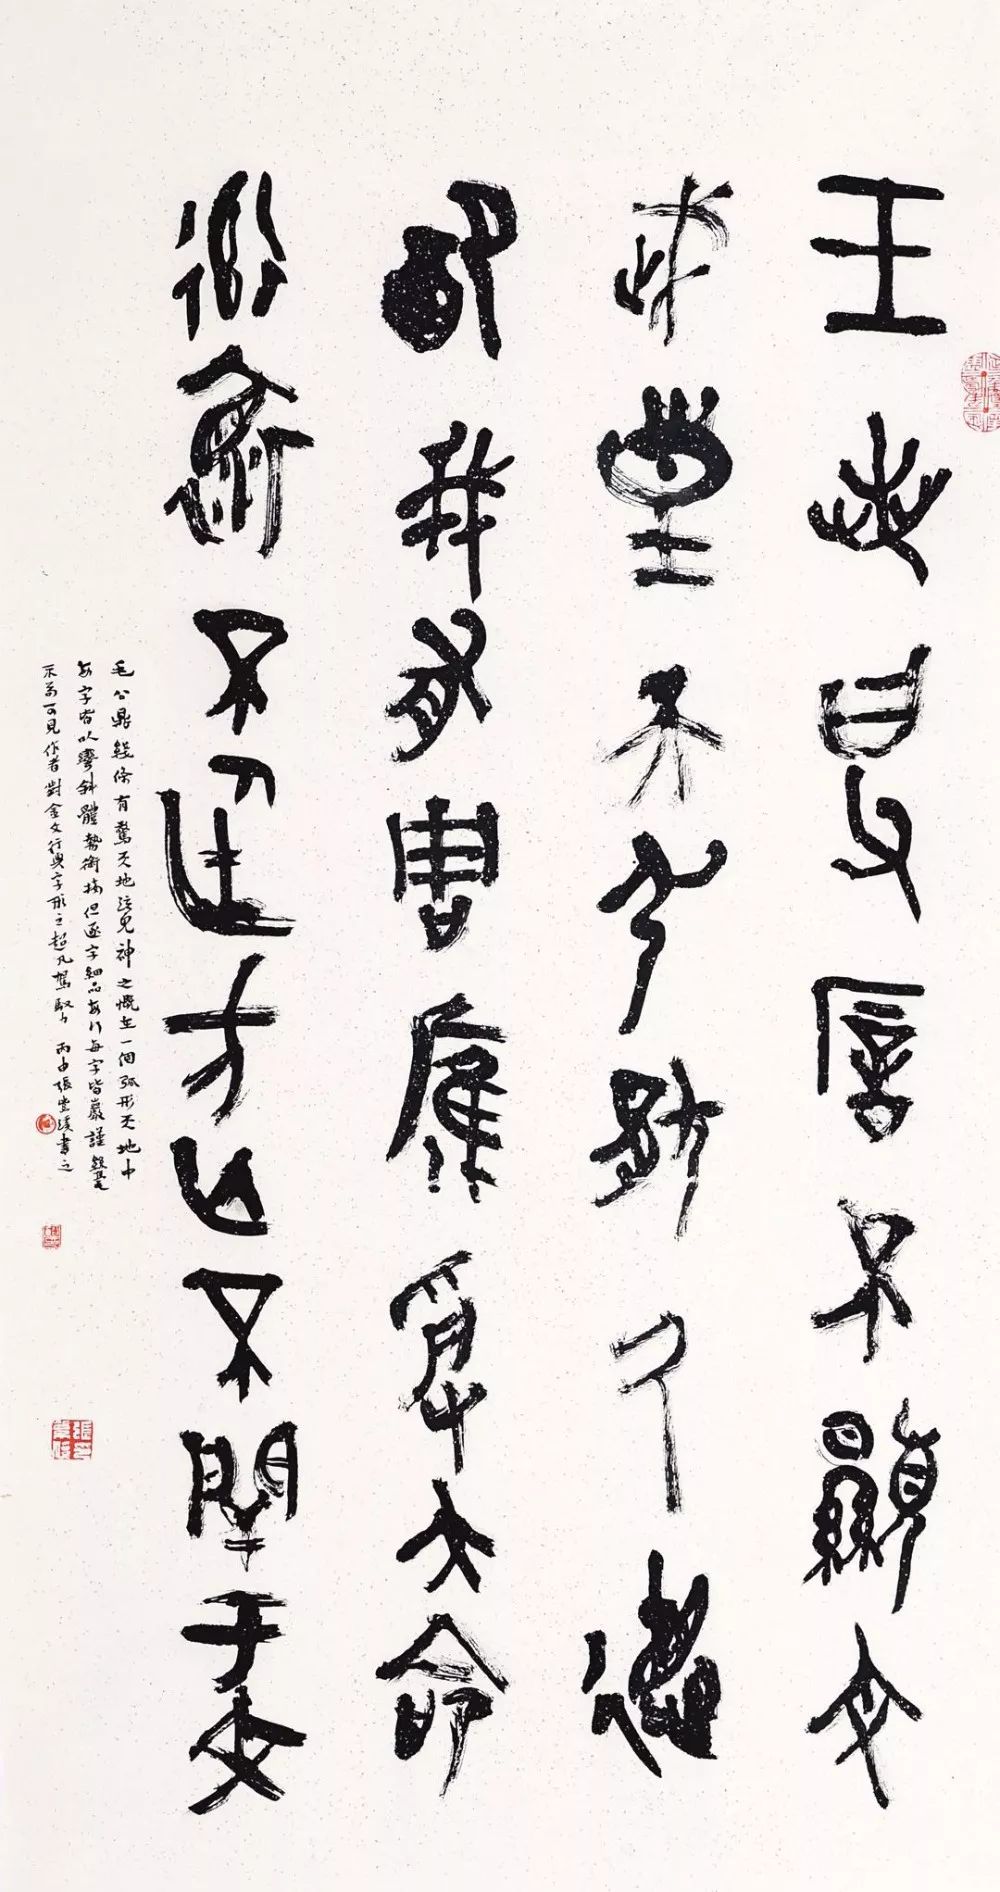 王若曰父厝不顯文
武皇天引猒氒德
配我有周雁受大命
率褱不廷方亡不閈于文
毛公鼎綫條有驚天地泣鬼神之慨在一個弧形天地中
每字皆以彎斜體勢銜接但逐字細品每行每字皆嚴謹
可見作者對金文行與字形之超凡駕馭 丙申張書之